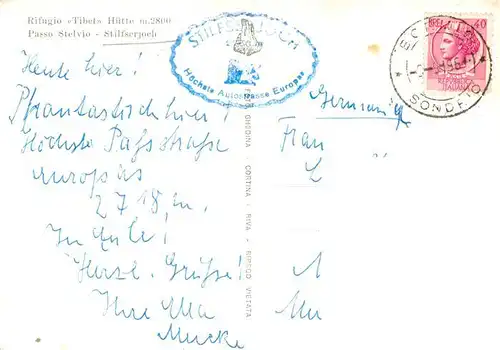 Rifugio «Tibet» Hütte m. 2800
Passo Stelvio - Stilfserjoch
STILFSERJOCH
Höchste Autostrasse Europas
40
SONDRIO
Heute hier!
Phantastisch hier!
Höchste Paßstraße
europas
2718 m.
In Eile!
Herzl. Grüße!
Ihre Ulla
Mucke
Germania
Frau
L
GHEDINA - CORTINA - RIVA - RIPROD. VIETATA